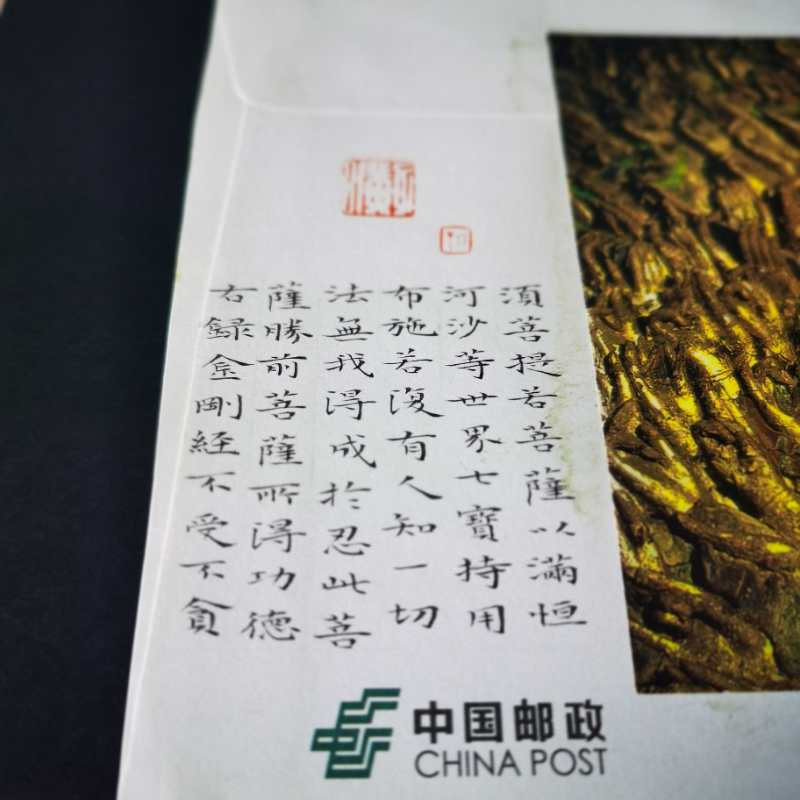 須菩提若菩薩以滿恒
河沙等世界七寶持用
布施若復有人知一切
法無我得成於忍此菩
薩勝前菩薩所得功德
右録金剛経不受不貪
中国邮政
CHINA POST